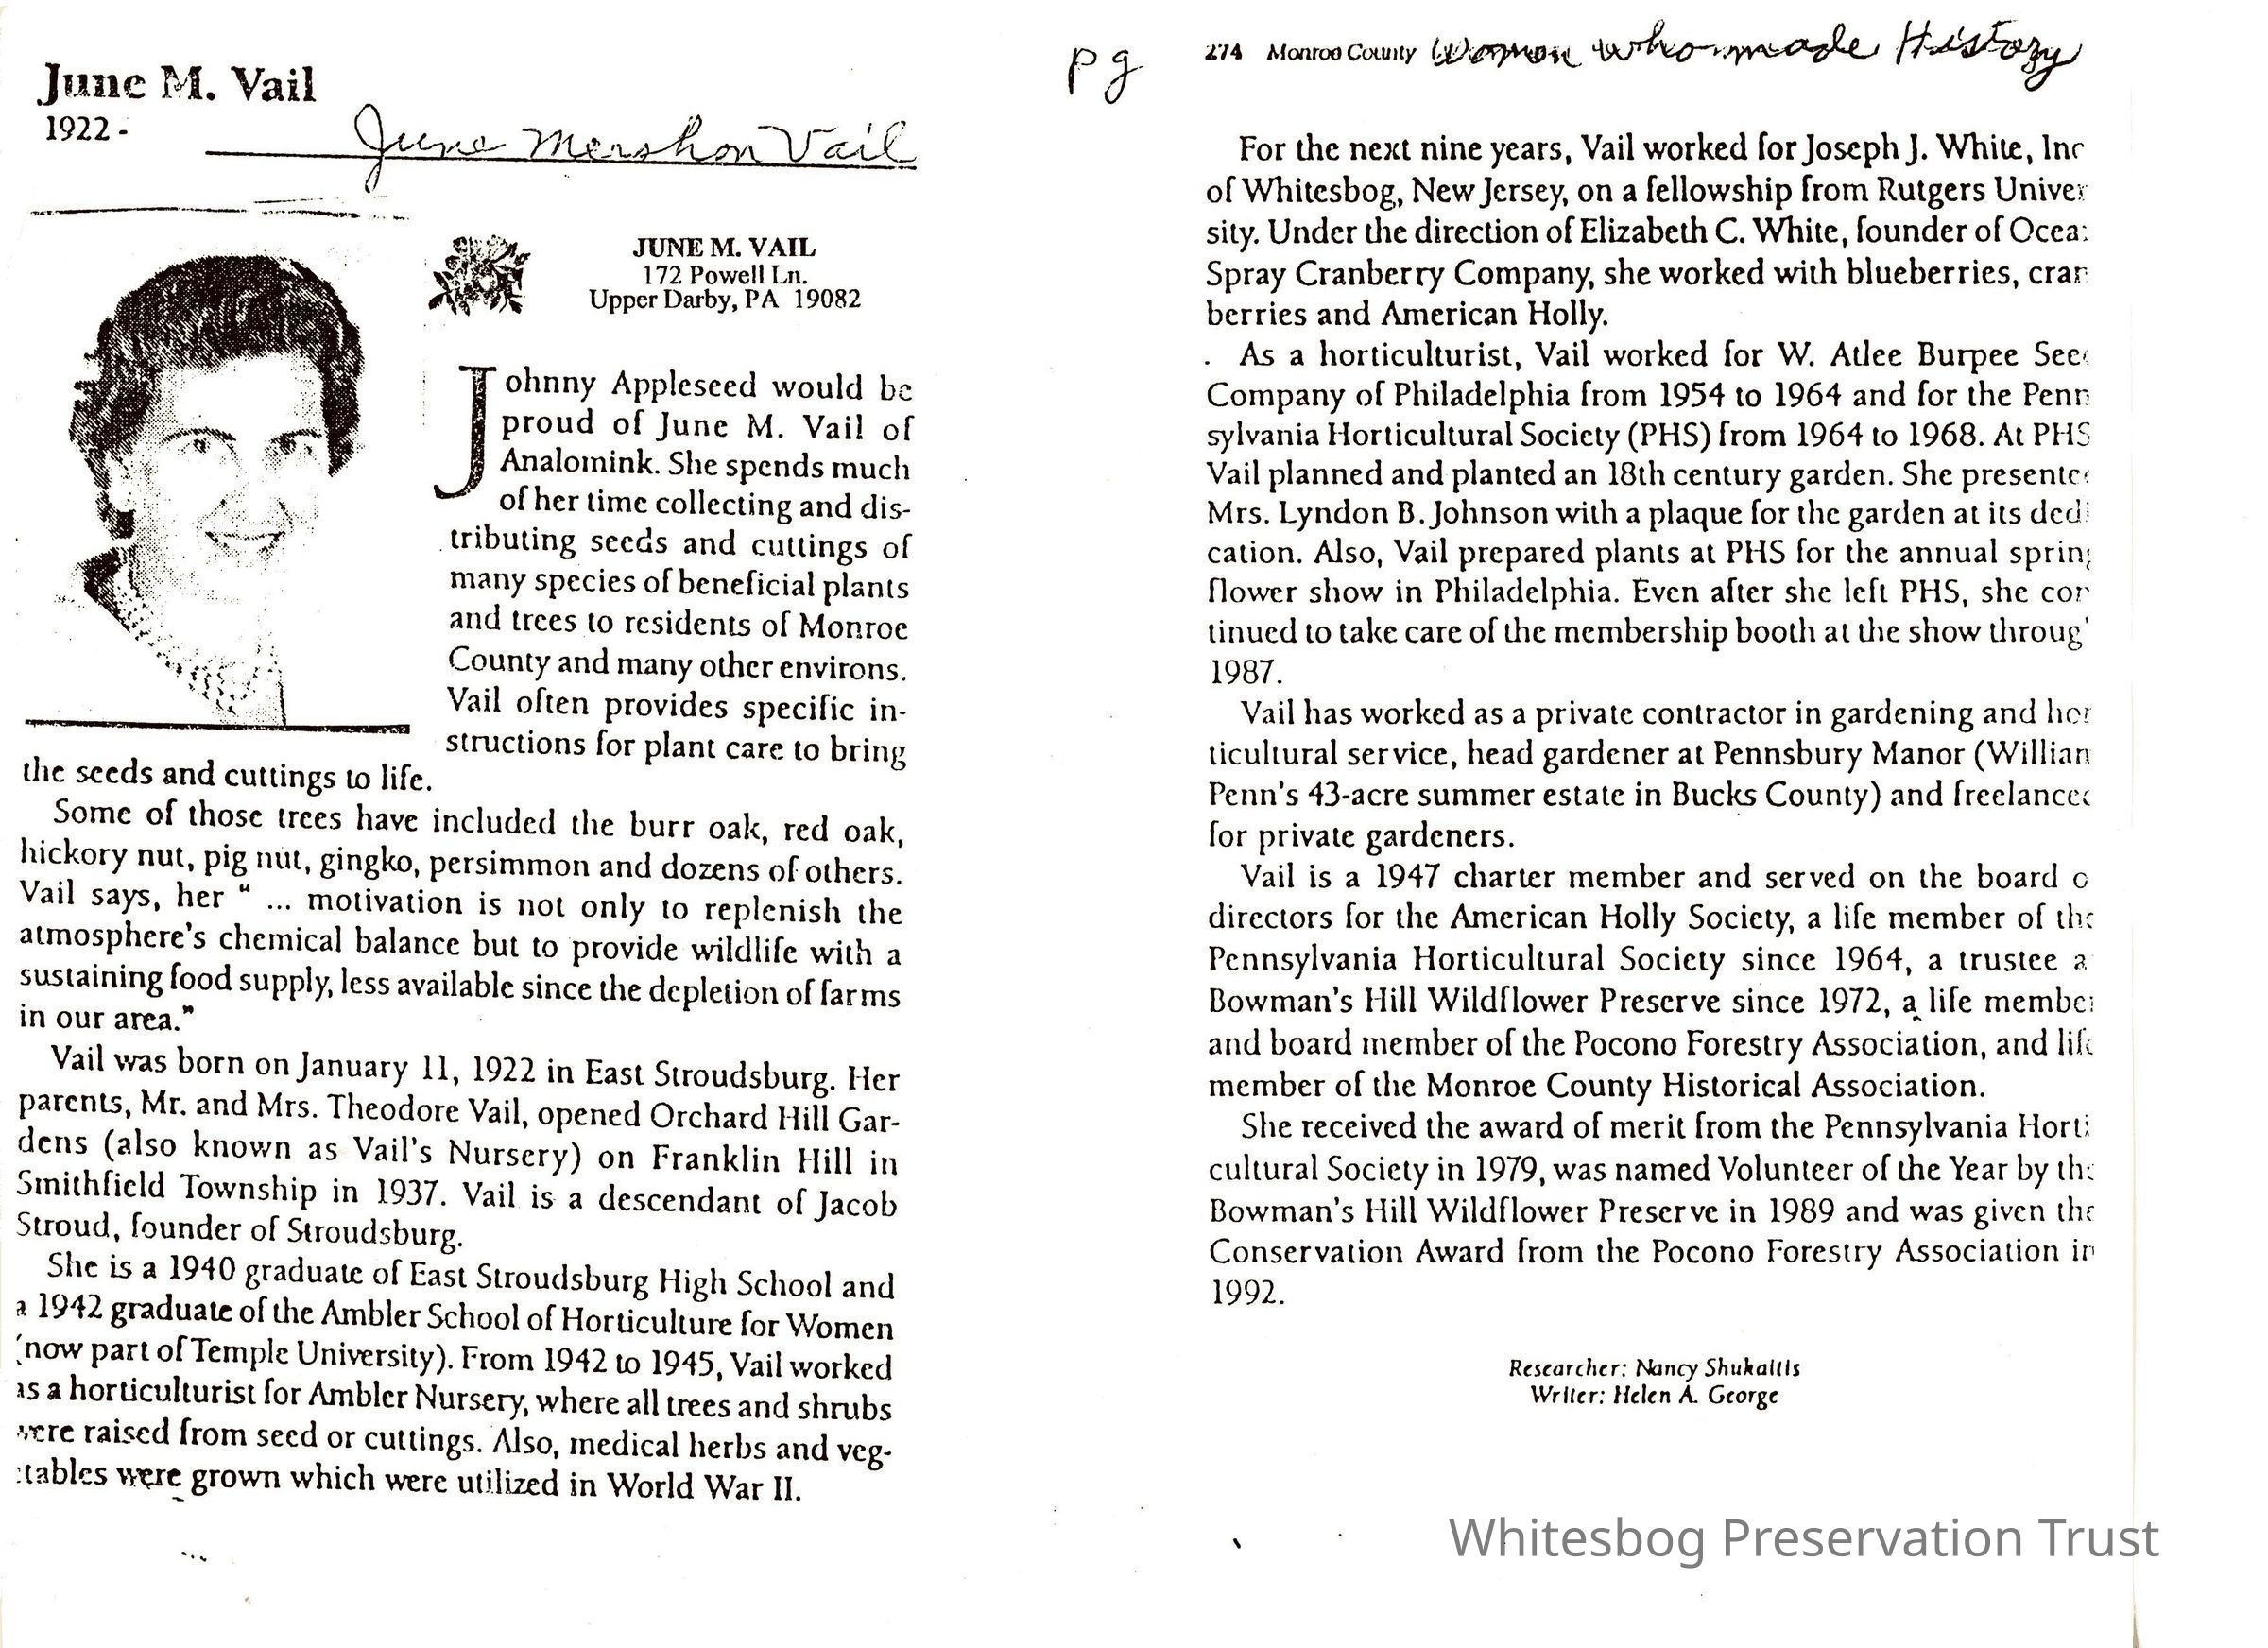 June M. Vail
1922 -
June Mershon Vail
JUNE M. VAIL
172 Powell Ln.
Upper Darby, PA 19082
Johnny Appleseed would be
proud of June M. Vail of
Analomink. She spends much
of her time collecting and dis-
tributing seeds and cuttings of
many species of beneficial plants
and trees to residents of Monroe
County and many other environs.
Vail often provides specific in-
structions for plant care to bring
the seeds and cuttings to life.
Some of those trees have included the burr oak, red oak,
hickory nut, pig nut, gingko, persimmon and dozens of others.
Vail says, her “ ... motivation is not only to replenish the
atmosphere's chemical balance but to provide wildlife with a
sustaining food supply, less available since the depletion of farms
in our area.”
Vail was born on January 11, 1922 in East Stroudsburg. Her
parents, Mr. and Mrs. Theodore Vail, opened Orchard Hill Gar-
dens (also known as Vail's Nursery) on Franklin Hill in
Smithfield Township in 1937. Vail is a descendant of Jacob
Stroud, founder of Stroudsburg.
She is a 1940 graduate of East Stroudsburg High School and
a 1942 graduate of the Ambler School of Horticulture for Women
(now part of Temple University). From 1942 to 1945, Vail worked
as a horticulturist for Ambler Nursery, where all trees and shrubs
were raised from seed or cuttings. Also, medical herbs and veg-
etables were grown which were utilized in World War II.
pg 274 Monroe County Women who made History
For the next nine years, Vail worked for Joseph J. White, Inc
of Whitesbog, New Jersey, on a fellowship from Rutgers Univer
sity. Under the direction of Elizabeth C. White, founder of Ocea
Spray Cranberry Company, she worked with blueberries, cran
berries and American Holly.
. As a horticulturist, Vail worked for W. Atlee Burpee See
Company of Philadelphia from 1954 to 1964 and for the Penn
sylvania Horticultural Society (PHS) from 1964 to 1968. At PHS
Vail planned and planted an 18th century garden. She presente
Mrs. Lyndon B. Johnson with a plaque for the garden at its dedi
cation. Also, Vail prepared plants at PHS for the annual spring
flower show in Philadelphia. Even after she left PHS, she con
tinued to take care of the membership booth at the show throug
1987.
Vail has worked as a private contractor in gardening and hor
ticultural service, head gardener at Pennsbury Manor (William
Penn's 43-acre summer estate in Bucks County) and freelance
for private gardeners.
Vail is a 1947 charter member and served on the board o
directors for the American Holly Society, a life member of the
Pennsylvania Horticultural Society since 1964, a trustee a
Bowman's Hill Wildflower Preserve since 1972, a life member
and board member of the Pocono Forestry Association, and life
member of the Monroe County Historical Association.
She received the award of merit from the Pennsylvania Horti
cultural Society in 1979, was named Volunteer of the Year by the
Bowman's Hill Wildflower Preserve in 1989 and was given the
Conservation Award from the Pocono Forestry Association in
1992.
Researcher: Nancy Shukaitis
Writer: Helen A. George
Whitesbog Preservation Trust